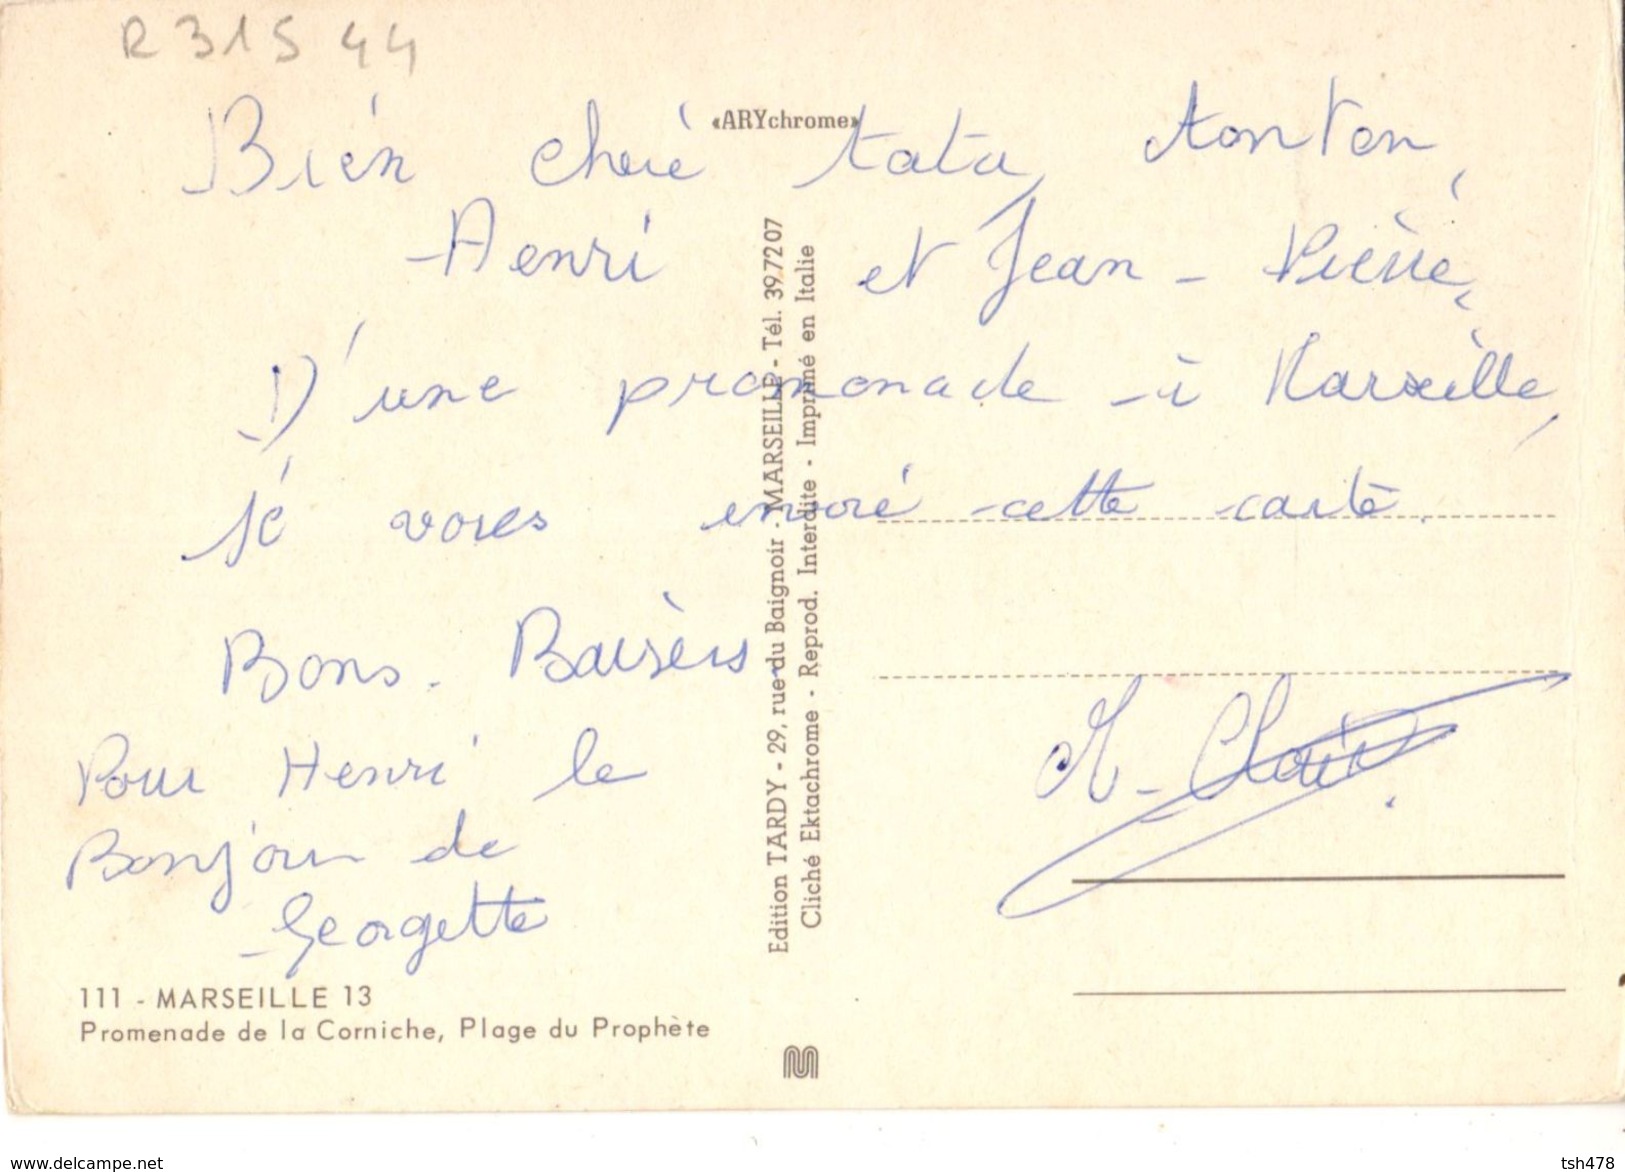 R 31544
«ARYchrome»
Bien cheré tata, tonton,
Henri et Jean-Pierre,
D'une promonade à Marseille,
je vous envoié cette carte.
Bons Baisers.
M-Clair
Pour Henri le
Bonjour de
Georgette
Edition TARDY - 29, rue du Baignoir - MARSEILLE - Tél. 39.72 07
Cliché Ektachrome - Reprod. Interdite - Imprimé en Italie
111 - MARSEILLE 13
Promenade de la Corniche, Plage du Prophète
www.delcampe.net
tsh478